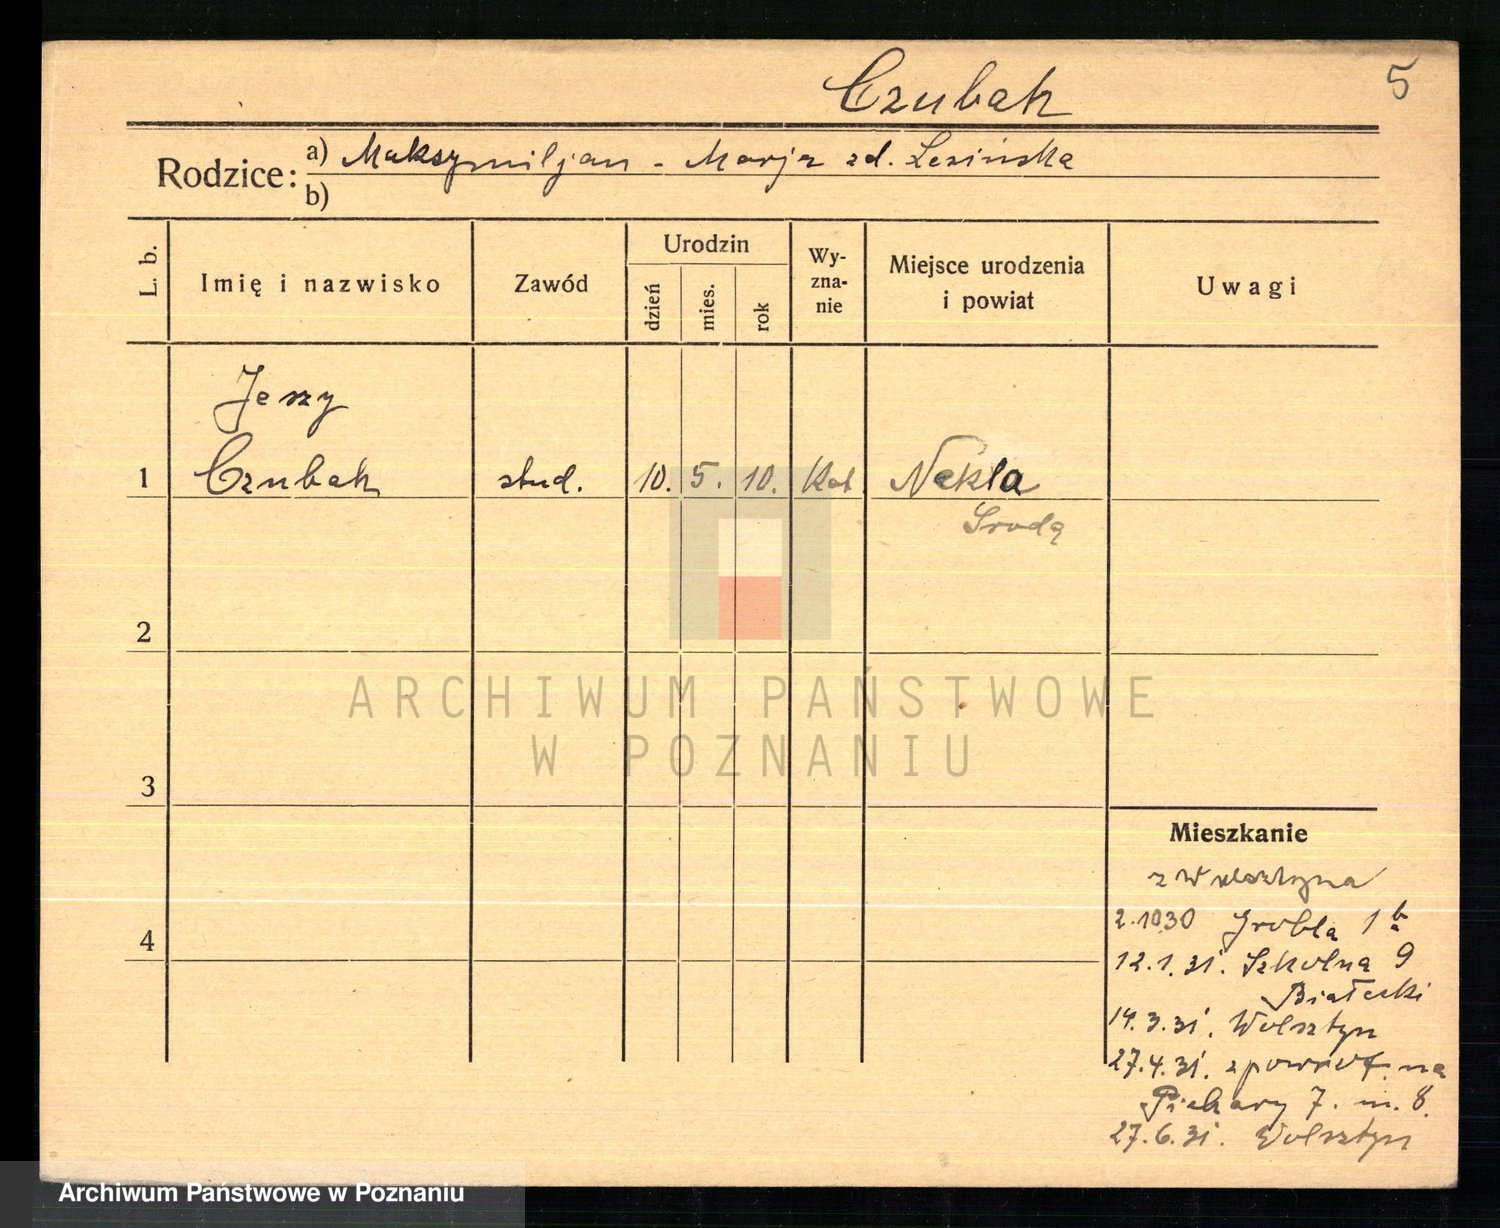 Czubak
5
Rodzice: a) Maksymiljan - Marja zd. Lesińska
b)
L. b.
Imię i nazwisko
Zawód
Urodzin
dzień
mies.
rok
Wy-
zna-
nie
Miejsce urodzenia
i powiat
Uwagi
Jerzy
1 Czubak stud. 10. 5. 10. Kat Nekla
Środa
2
3
4
Mieszkanie
z Wolsztyna
2.10.30 Grobla 1
12.1.31. Szkolna 9
Białecki
14.3.31. Wolsztyn
27.4.31. z powrot. na
Piekary 7. m. 8.
27.6.31. Wolsztyn
ARCHIWUM PAŃSTWOWE
W POZNANIU
Archiwum Państwowe w Poznaniu